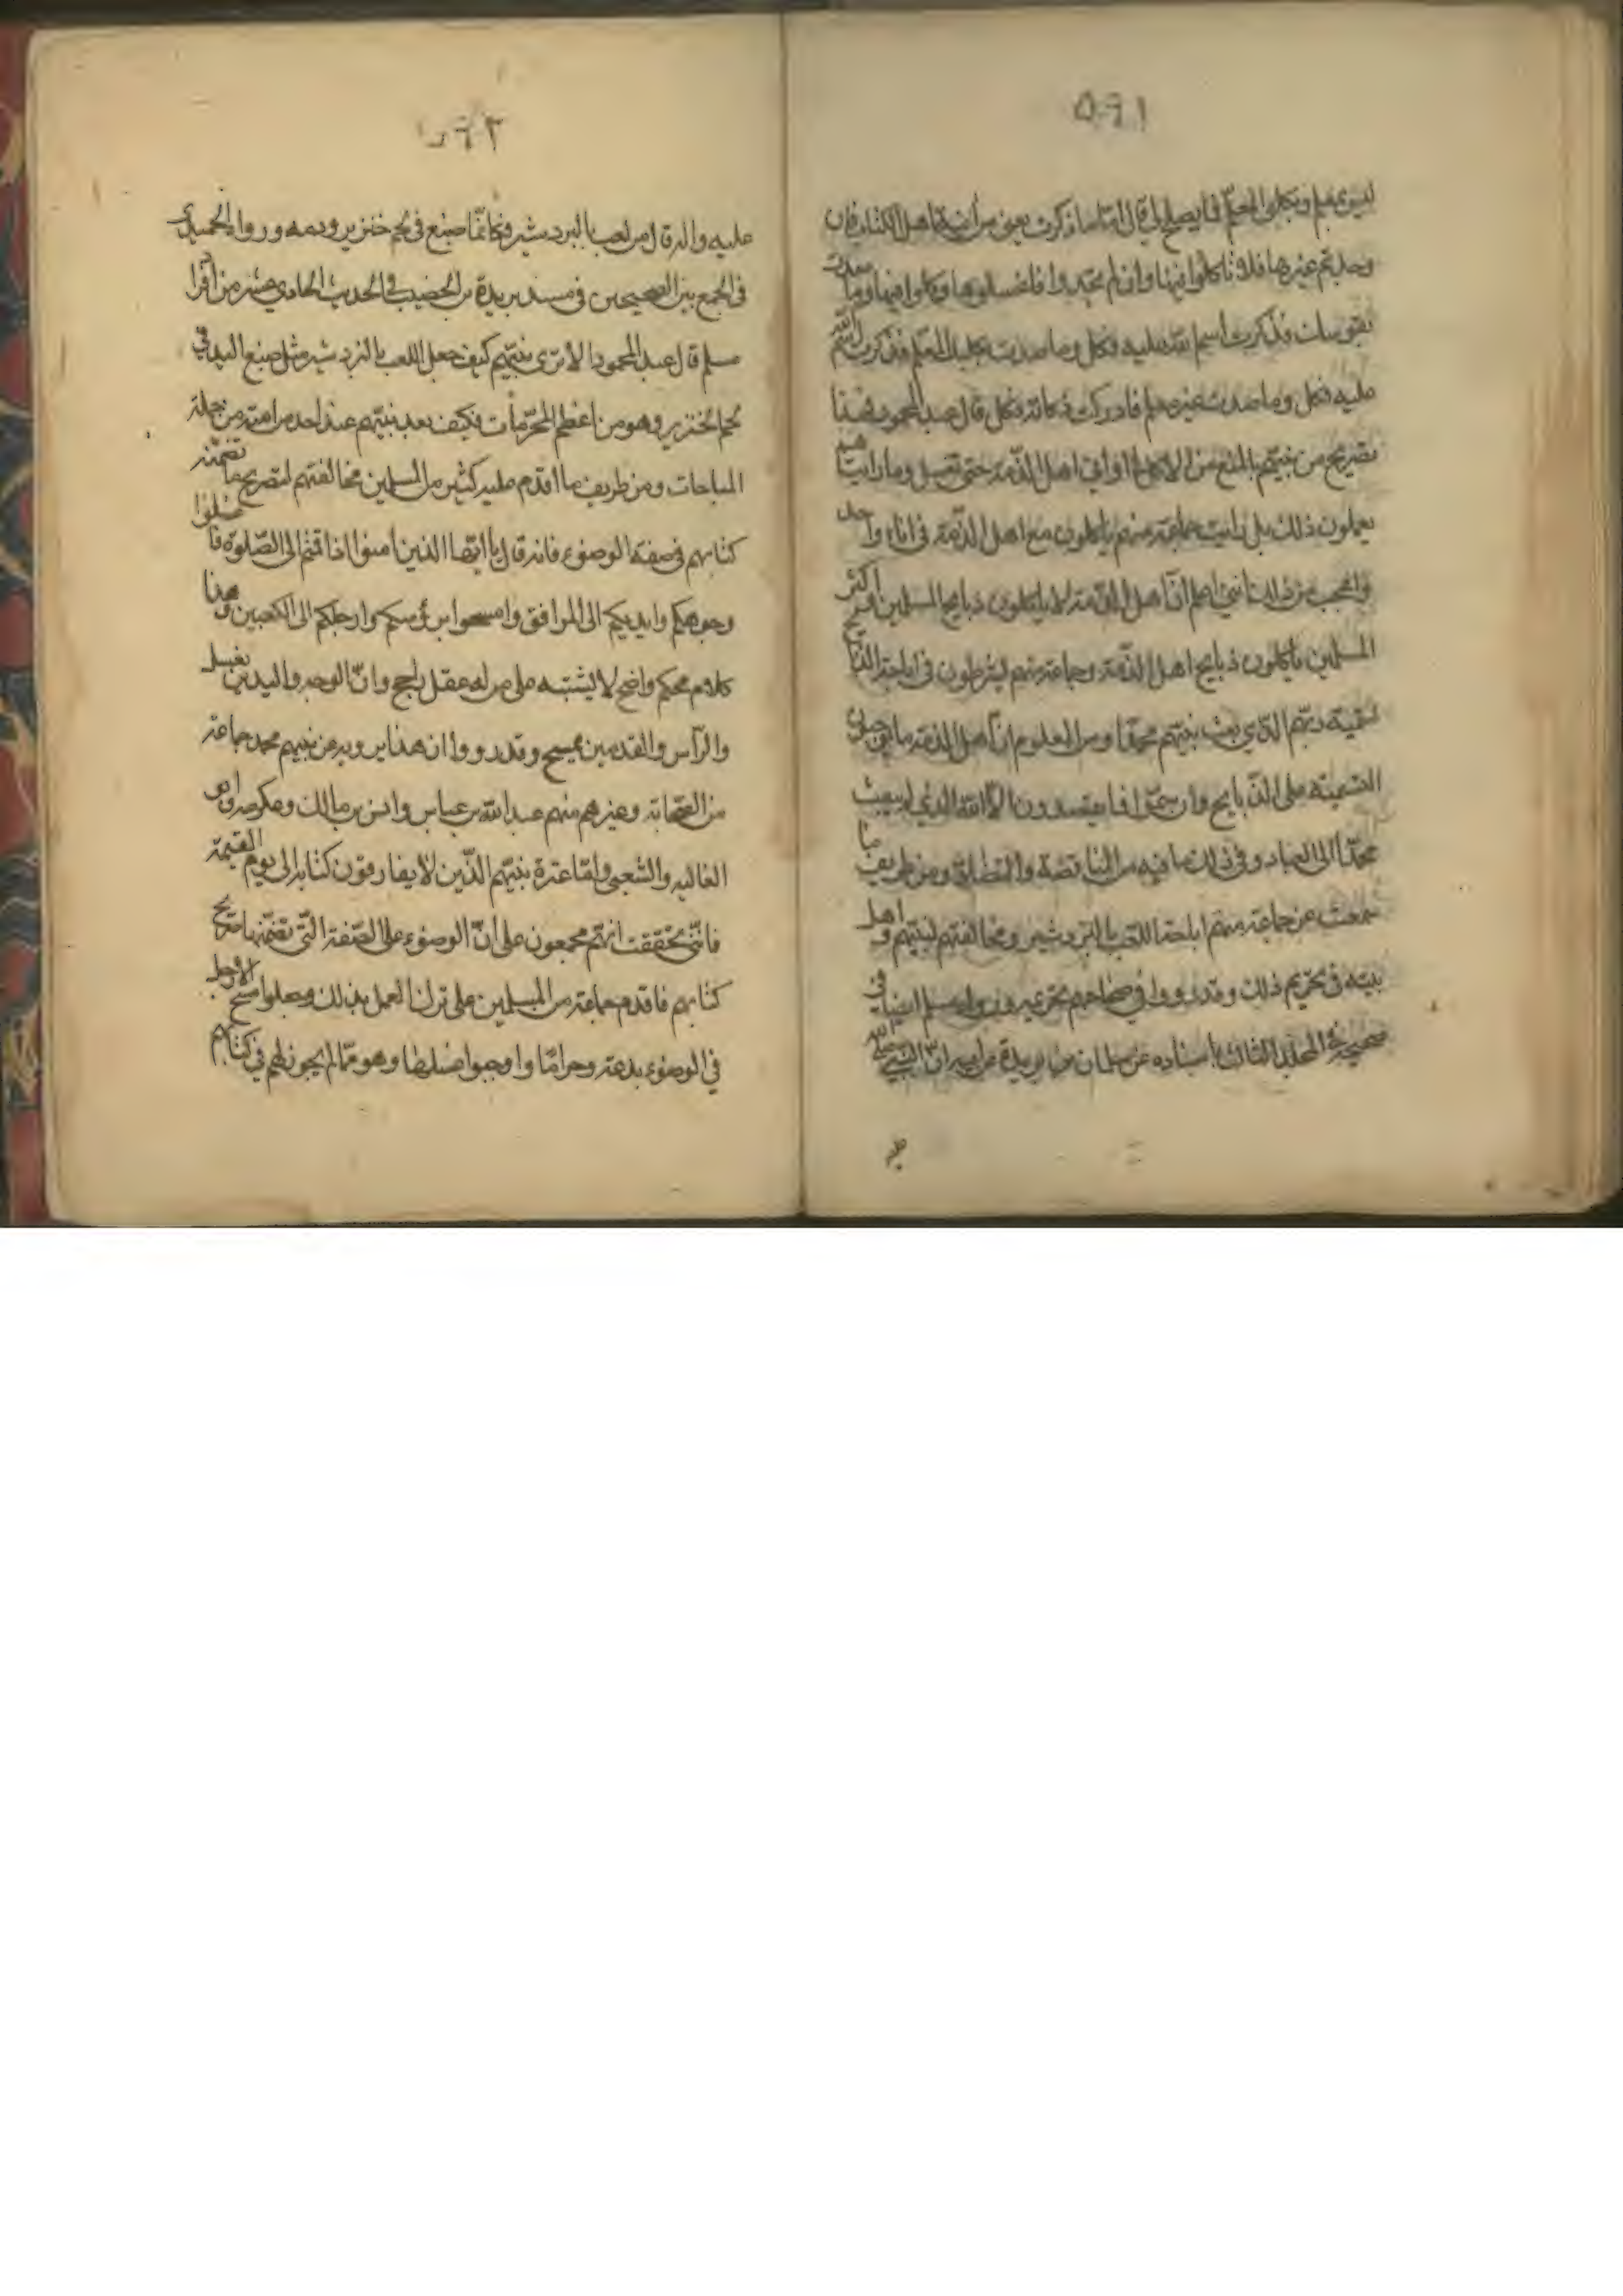 ٥٩١
ليس بمعلم وبكلبي المعلم فما يصلح لي قال اما ما ذكرت يعني من آنية اهل الكتاب فان
وجدتم غيرها فلا تاكلوا فيها وان لم تجدوا فاغسلوها وكلوا فيها وما صدت
بقوسك فذكرت اسم الله عليه فكل وما صدت بكلبك المعلم فذكرت اسم الله
عليه فكل وما صدت بكلبك غير معلم فادركت ذكاته فكل قال عبد المحمود فهذا
تصريح من نبيهم بالمنع من الاكل في اواني اهل الذمة حتى تغسل وما رايت
يعملون ذلك بل رايت جماعة منهم ياكلون مع اهل الذمة في اناء واحد
والعجب من ذلك انني اعلم ان اهل الذمة لا ياكلون ذبايح المسلمين واكثر
المسلمين ياكلون ذبايح اهل الذمة وجماعة منهم يشرطون في اباحة الذبايح
تسمية ربهم الذي بعث نبيهم محمدا ومن المعلوم ان اهل الذمة
التسمية على الذبايح وان سموا فما يقصدون الا الله الذي لم يبعث
محمدا الى العباد وفي ذلك ما فيه من المناقضة ومن طريف ما
سمعت عن جماعة منهم اباحة اللعب بالنردشير ومخالفتهم لنبيهم واهل
بيته في تحريم ذلك وقد رووا في صحاحهم تحريمه مسلم ايضا في
صحيحه في المجلد الثالث باسناده عن سليمان بن بريدة عن ابيه ان النبي صلى الله
عليه
٥٩٢
عليه واله قال من لعب بالنردشير فكانما صبغ في لحم خنزير ودمه ورواه الحميدي
في الجمع بين الصحيحين في مسند بريدة بن الحصيب في الحديث الحادي عشر من افراد
مسلم قال عبد المحمود الا ترى نبيهم كيف جعل اللعب بالنردشير مثل صبغ اليد في
لحم الخنزير وهو من اعظم المحرمات فكيف يعد نبيهم عند احد من امته من جملة
المباحات ومن طريف ما اقدم عليه كثير من المسلمين مخالفتهم لتصريح ما تضمنه
كتابهم في صفة الوضوء فانه قال يا ايها الذين امنوا اذا قمتم الى الصلوة فاغسلوا
وجوهكم وايديكم الى المرافق وامسحوا برؤسكم وارجلكم الى الكعبين وهذا
كلام محكم واضح لا يشتبه على من له عقل راجح وان الوجه واليدين يغسل
والرأس والقدمين يمسح وقد رووا ان هذا يرويه عن نبيهم محمد جماعة
من الصحابة وغيرهم منهم عبد الله بن عباس وانس بن مالك وعكرمة وابو
العاليه والشعبي واما عترة نبيهم الذين لا يفارقون كتابه الى يوم القيمة
فانني تحققت انهم مجمعون على ان الوضوء على الصفة التي تضمنها صريح
كتابهم فاقدم جماعة من المسلمين على ترك العمل بذلك وجعلوا مسح الارجل
في الوضوء بدعة وحراما واوجبوا غسلها وهو مما لم يجوز لهم في كتابهم